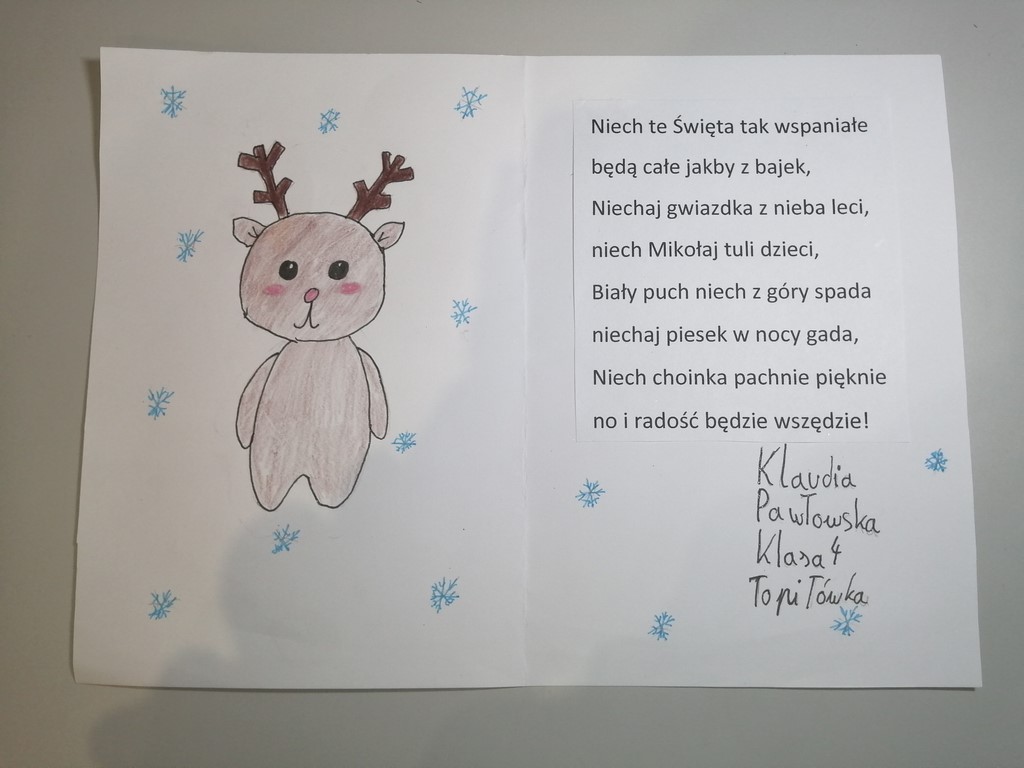 Niech te Święta tak wspaniałe
będą całe jakby z bajek,
Niechaj gwiazdka z nieba leci,
niech Mikołaj tuli dzieci,
Biały puch niech z góry spada
niechaj piesek w nocy gada,
Niech choinka pachnie pięknie
no i radość będzie wszędzie!
Klaudia
Pawłowska
Klasa 4
Topiłówka